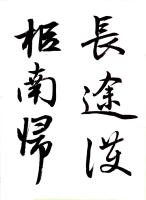 長途護
柩南歸